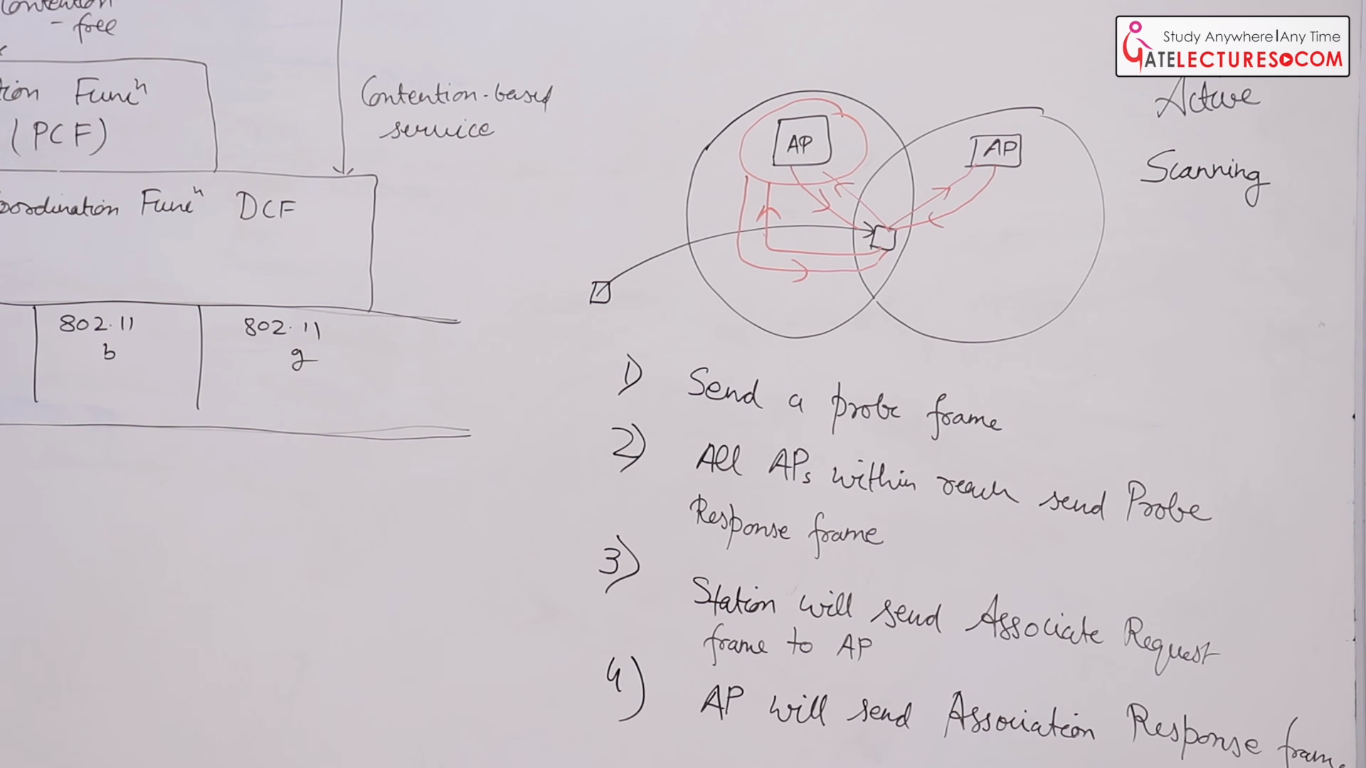 Contention
- free
tion Funcⁿ
(PCF)
Contention-based
service
oordination Funcⁿ DCF
802.11
b
802.11
g
Study Anywhere|Any Time
GATELECTURES.COM
Active
Scanning
AP
AP
1) Send a probe frame
2) All APs within reach send Probe
Response frame
3) Station will send Associate Request
frame to AP
4) AP will send Association Response fram